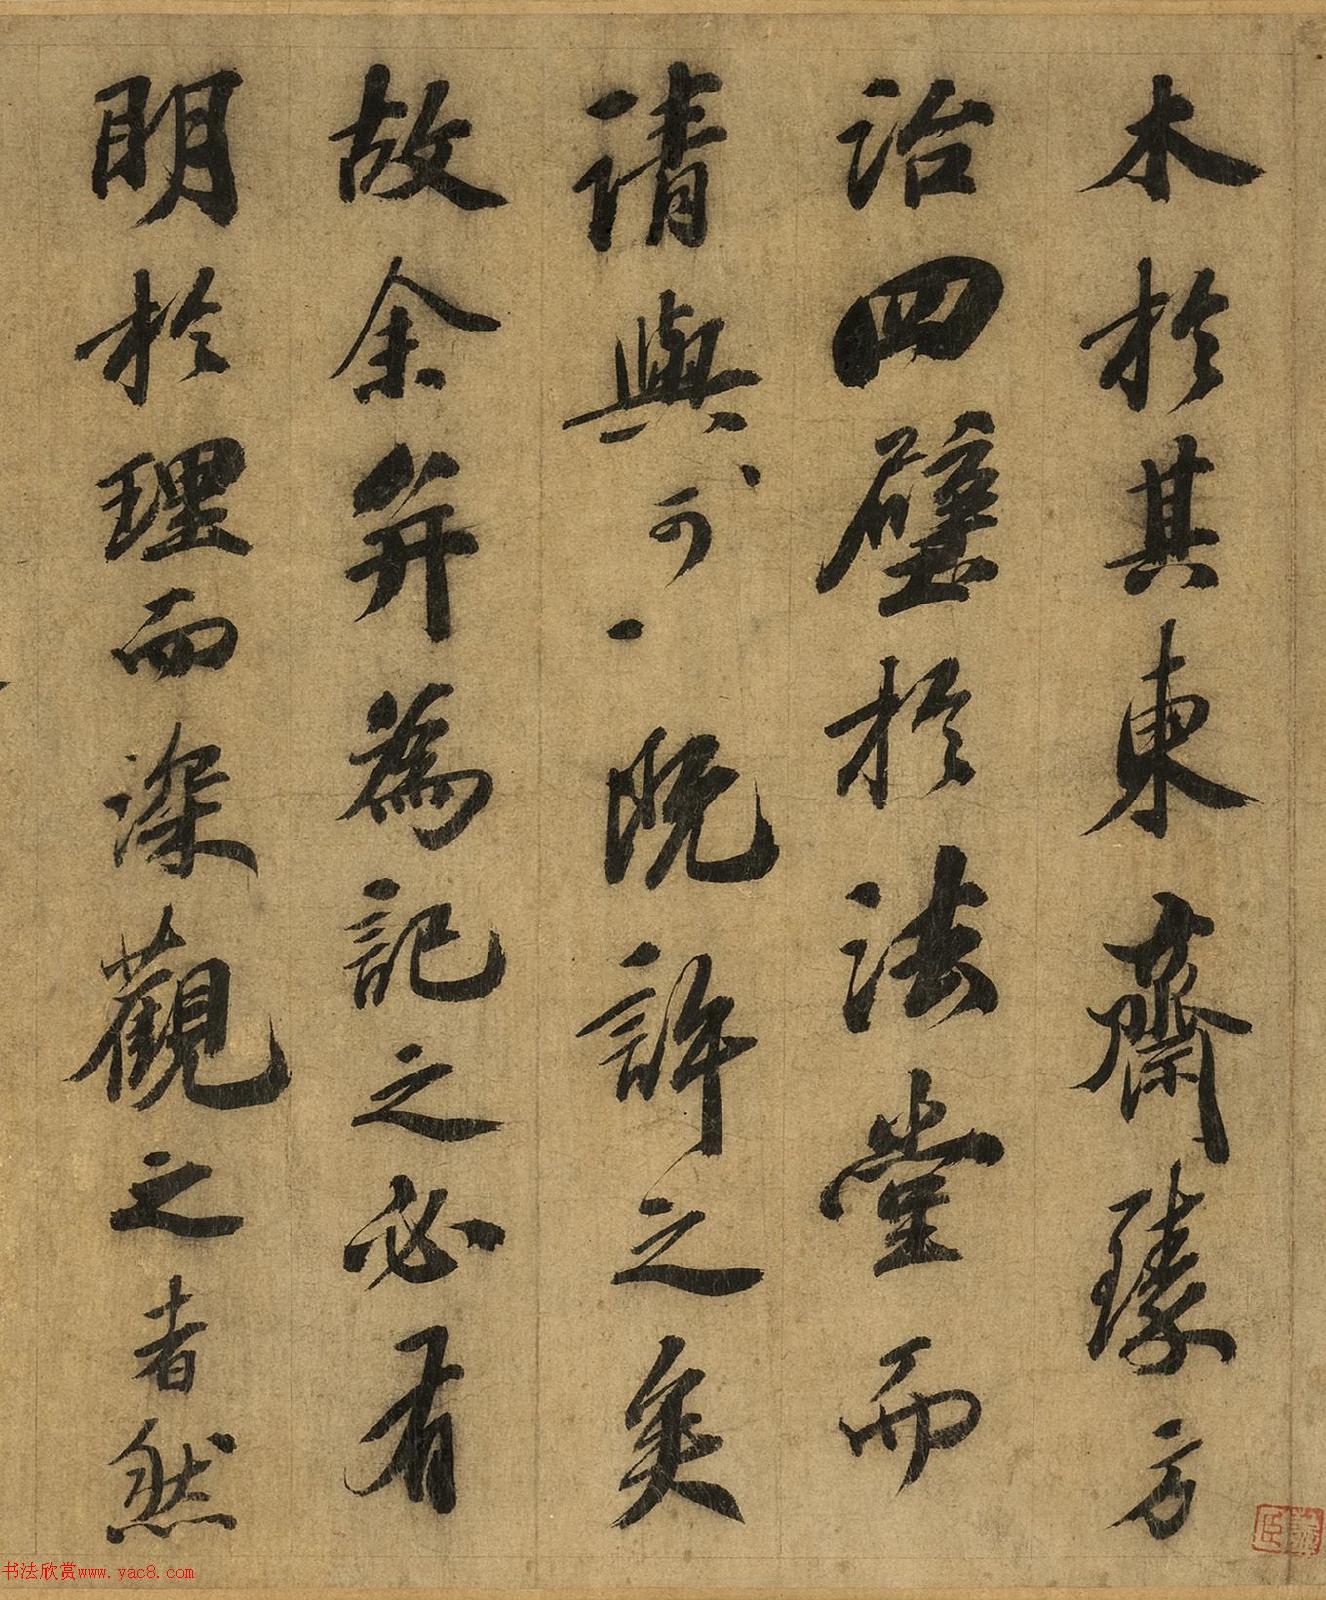 木於其東齋臻方
治四壁於法堂而
請與〻可〻既許之矣
故余并為記之必有
明於理而深觀之者然
书法欣赏www.yac8.com